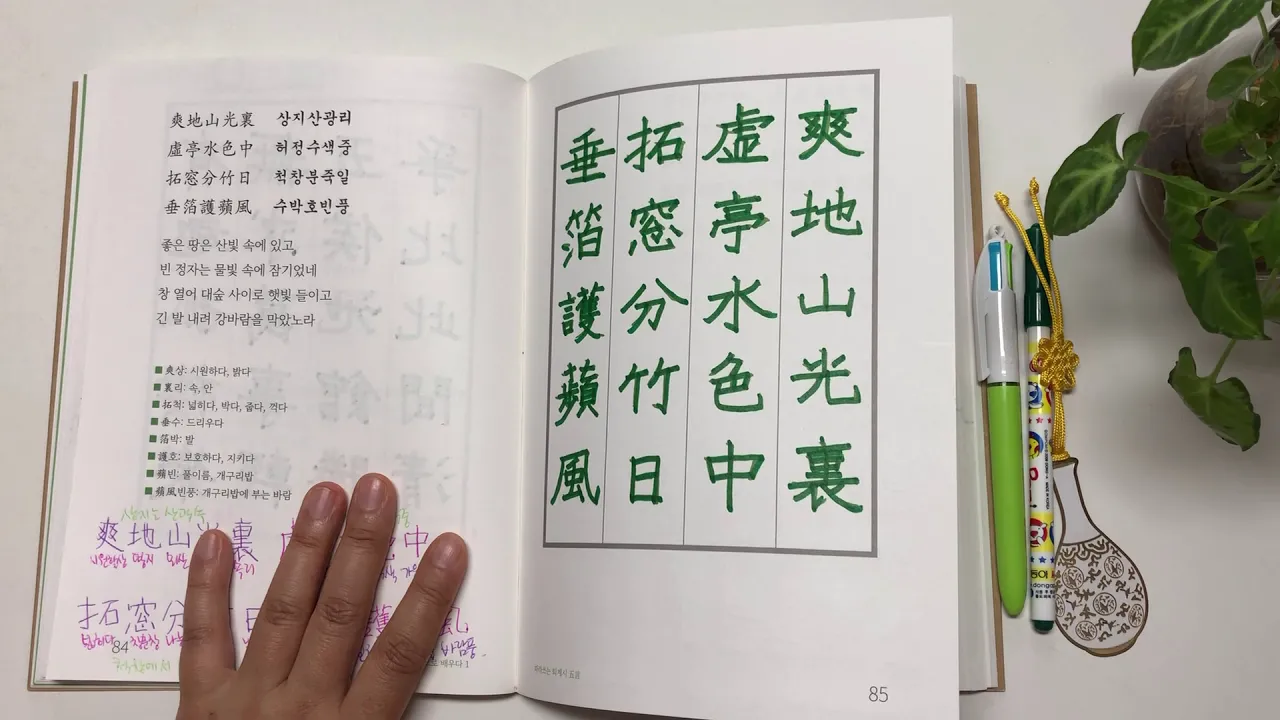 爽地山光裏 상지산광리
虛亭水色中 허정수색중
拓窓分竹日 척창분죽일
垂箔護蘋風 수박호빈풍
좋은 땅은 산빛 속에 있고,
빈 정자는 물빛 속에 잠기었네
창 열어 대숲 사이로 햇빛 들이고
긴 발 내려 강바람을 막았노라
■ 爽상: 시원하다, 밝다
■ 裏리: 속, 안
■ 拓척: 넓히다, 박다, 줍다, 꺽다
■ 垂수: 드리우다
■ 箔박: 발
■ 護호: 보호하다, 지키다
■ 蘋빈: 풀이름, 개구리밥
■ 蘋風빈풍: 개구리밥에 부는 바람
爽地山光裏 中
拓窓分 日 風
바람풍
84
배우다 1
爽地山光裏
虛亭水色中
拓窓分竹日
垂箔護蘋風
따라쓰는 퇴계시 五言
85